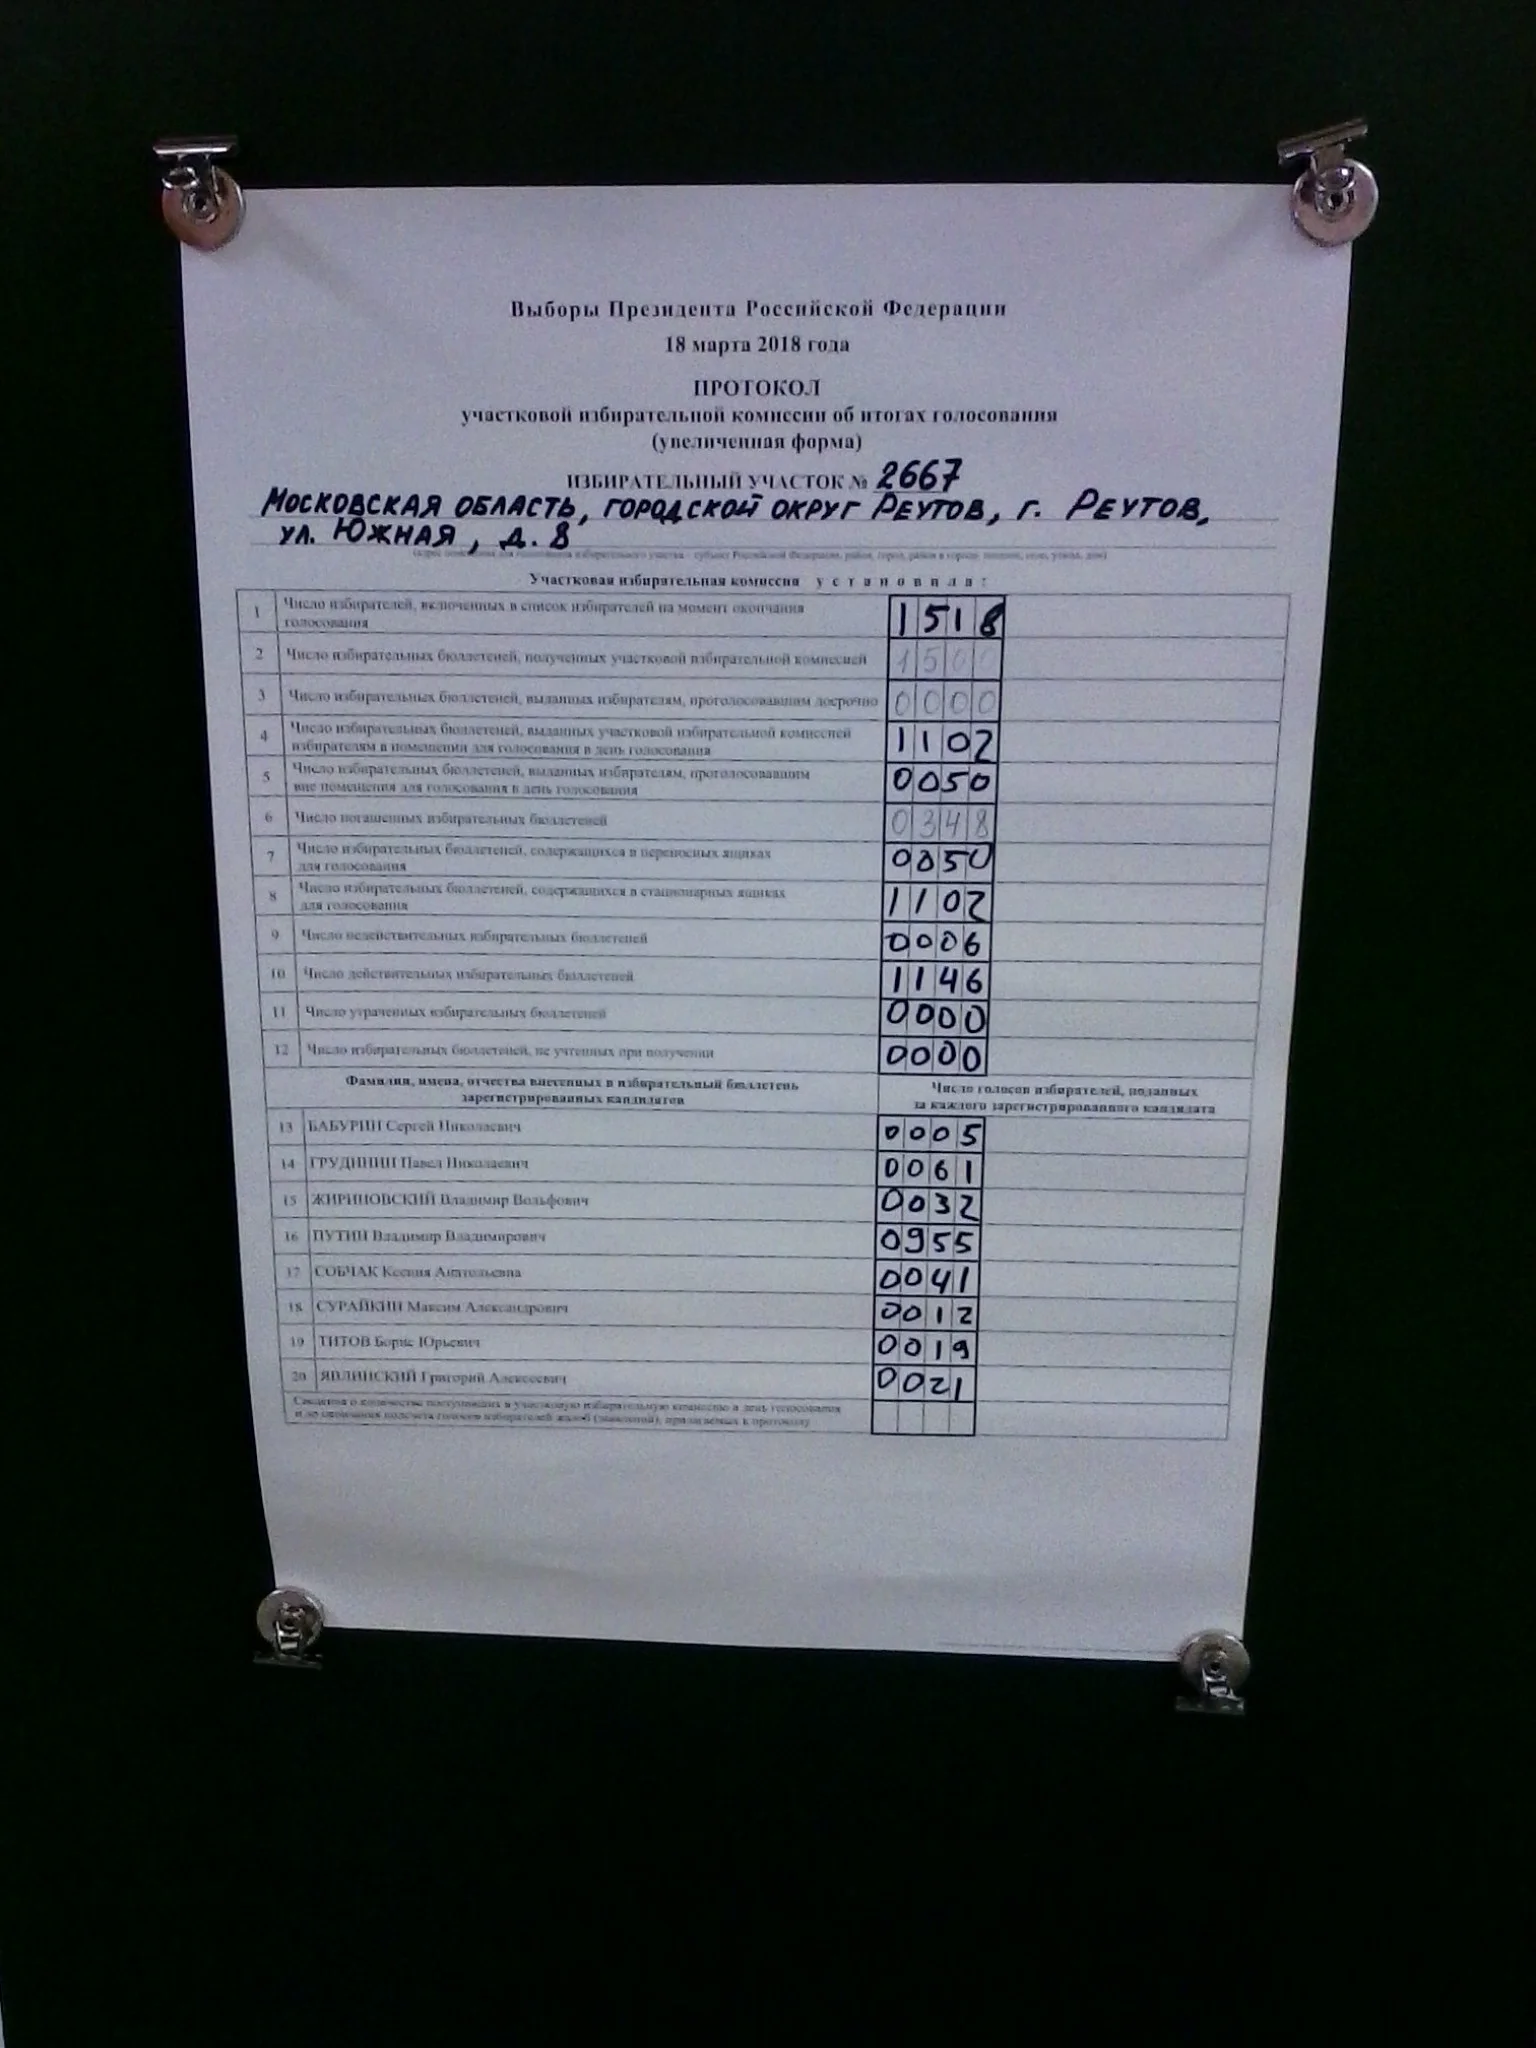 Выборы Президента Российской Федерации
18 марта 2018 года
ПРОТОКОЛ
участковой избирательной комиссии об итогах голосования
(увеличенная форма)
ИЗБИРАТЕЛЬНЫЙ УЧАСТОК № 2667
Московская область, городской округ Реутов, г. Реутов,
ул. Южная, д. 8
Участковая избирательная комиссия установила:
1 Число избирателей, включенных в список избирателей на момент окончания
голосования 1518
2 Число избирательных бюллетеней, полученных участковой избирательной комиссией 1500
3 Число избирательных бюллетеней, выданных избирателям, проголосовавшим досрочно 0000
4 Число избирательных бюллетеней, выданных участковой избирательной комиссией
избирателям в помещении для голосования в день голосования 1102
5 Число избирательных бюллетеней, выданных избирателям, проголосовавшим
вне помещения для голосования в день голосования 0050
6 Число погашенных избирательных бюллетеней 0348
7 Число избирательных бюллетеней, содержащихся в переносных ящиках
для голосования 0050
8 Число избирательных бюллетеней, содержащихся в стационарных ящиках
для голосования 1102
9 Число недействительных избирательных бюллетеней 0006
10 Число действительных избирательных бюллетеней 1146
11 Число утраченных избирательных бюллетеней 0000
12 Число избирательных бюллетеней, не учтенных при получении 0000
Фамилии, имена, отчества внесенных в избирательный бюллетень
зарегистрированных кандидатов
Число голосов избирателей, поданных
за каждого зарегистрированного кандидата
13 БАБУРИН Сергей Николаевич 0005
14 ГРУДИНИН Павел Николаевич 0061
15 ЖИРИНОВСКИЙ Владимир Вольфович 0032
16 ПУТИН Владимир Владимирович 0955
17 СОБЧАК Ксения Анатольевна 0041
18 СУРАЙКИН Максим Александрович 0012
19 ТИТОВ Борис Юрьевич 0019
20 ЯВЛИНСКИЙ Григорий Алексеевич 0021
Сведения о количестве поступивших в участковую избирательную комиссию в день голосования
и до окончания подсчета голосов избирателей жалоб (заявлений), прилагаемых к протоколу